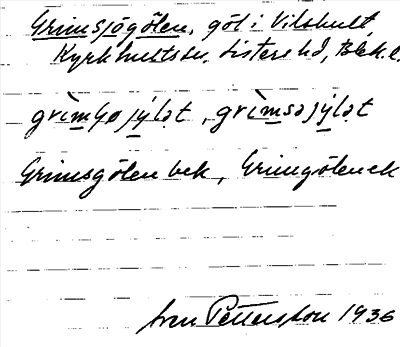 Grimsjögölen, göl i Vilshult,
Kyrkhults sn, Listers hd, Blek. l.
grìmʃojỳlət, grìmsəjỳlət
Grimsgölen bek, Grimgölen ek
Pettersson 1936